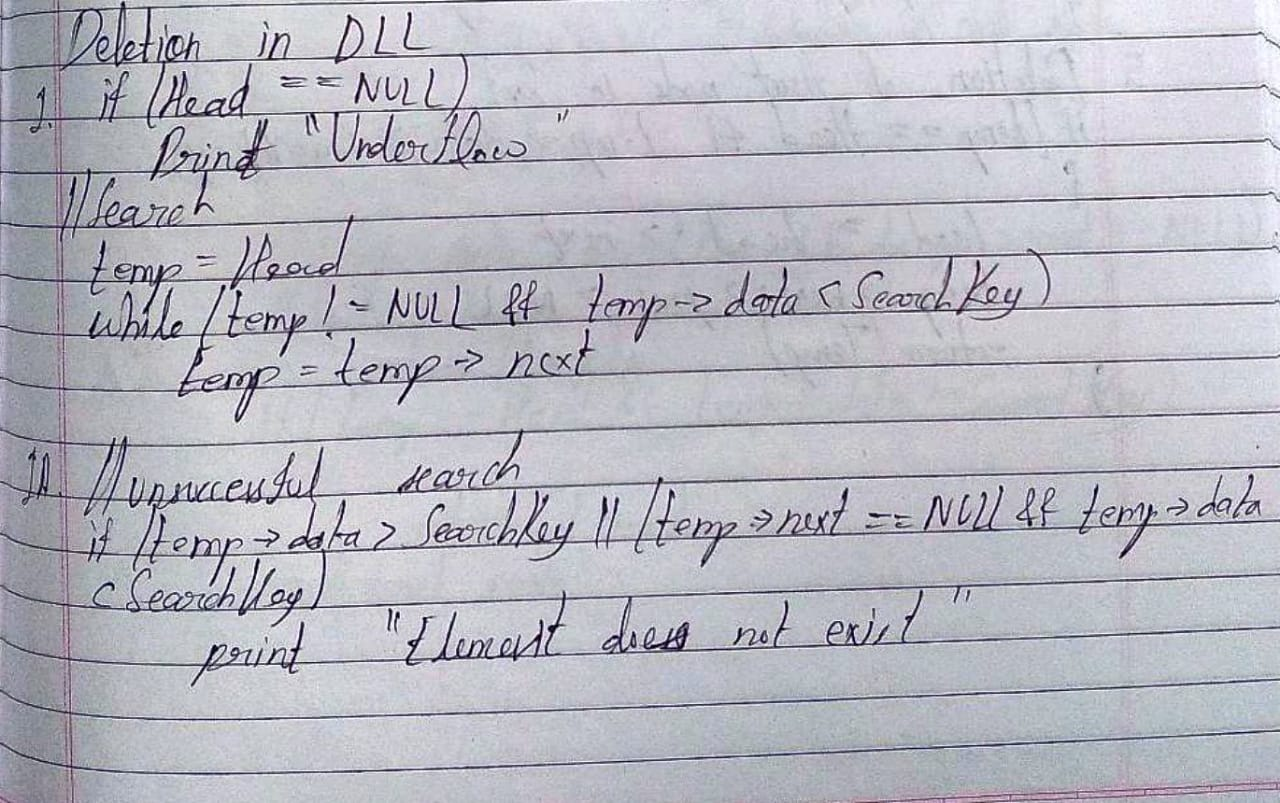 Deletion in DLL
1. if (Head == NULL)
Print "Underflow"
//Search
temp = Head
while (temp != NULL && temp -> data < SearchKey)
temp = temp -> next
//unsuccessful search
if (temp -> data > SearchKey || (temp -> next == NULL && temp -> data
< SearchKey)
print "Element does not exist"